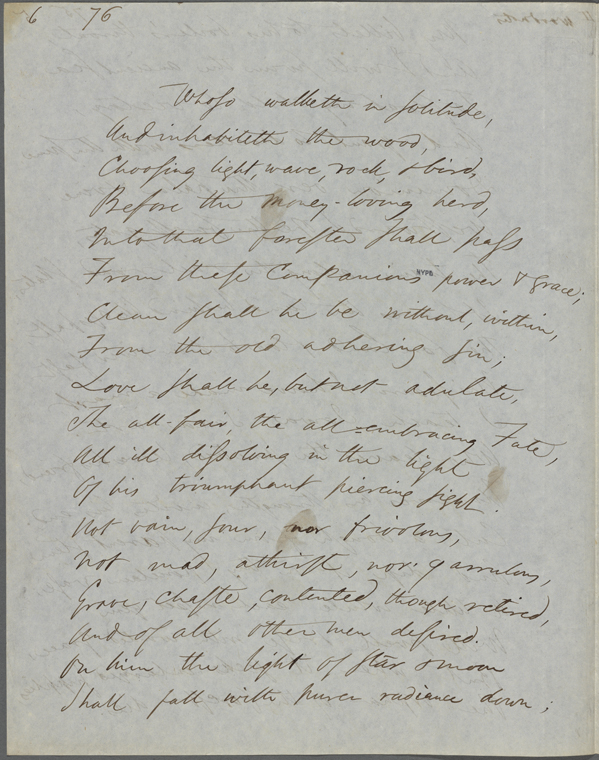 6 76
Whoso walketh in solitude,
And inhabiteth the wood,
Choosing light, wave, rock, & bird,
Before the money-loving herd,
Into that forester shall pass
From these Companions power & grace;
NYPL
Clean shall he be without, within,
From the old adhering sin;
Love shall he, but not adulate,
The all-fair, the all-embracing Fate,
All ill dissolving in the light
Of his triumphant piercing sight.
Not vain, sour, nor frivolous,
Not mad, athirst, nor garrulous,
Grave, chaste, contented, though retired,
And of all other men desired.
On him the light of star & moon
Shall fall with purer radiance down;